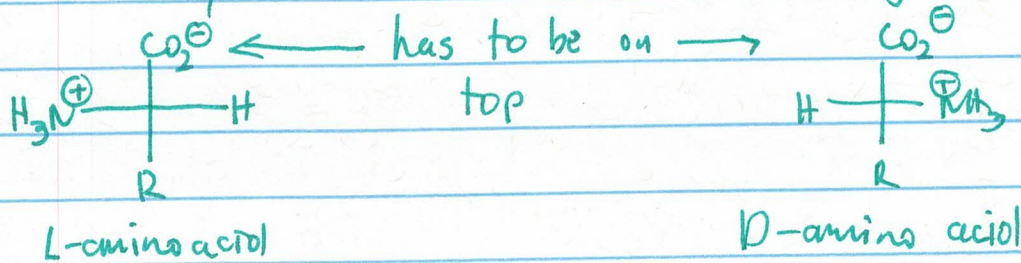 CO₂⊖ ← has to be on → CO₂⊖
H₃N⊕ H top H ⊕NH₃
R R
L-amino acid D-amino acid